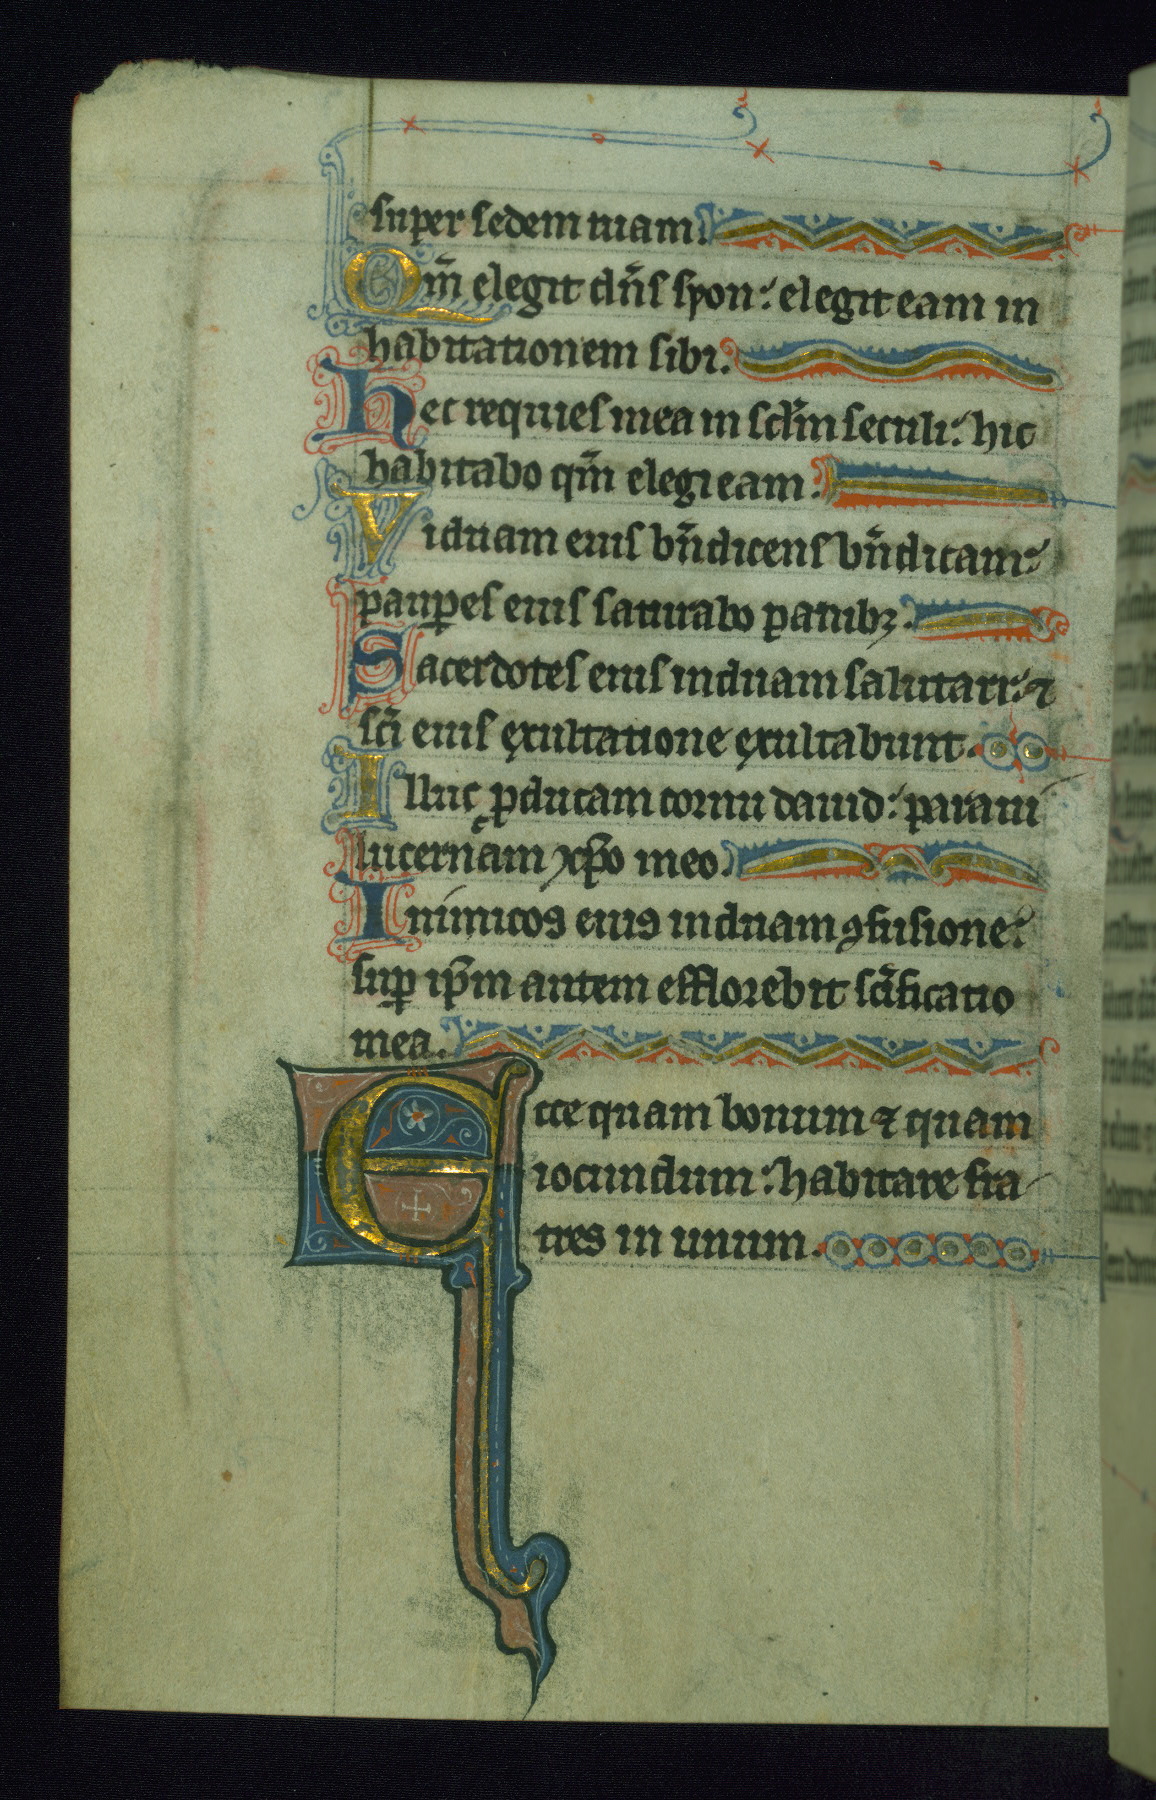 super sedem tuam.
Qm̄ elegit dn̄s syon: elegit eam in
habitationem sibi.
Hec requies mea in sclm̄ seculi: hic
habitabo qm̄ elegi eam.
Viduam eius bn̄dicens bn̄dicam:
paup̲es eius saturabo panibꝫ.
Sacerdotes eius induam salutari: ⁊
sc̄i eius exultatione exultabunt.
Illuc ꝓducam cornu dauid: paraui
lucernam xp̄o meo.
Inimicos eius induam ꝯfusione:
suꝑ ip̄m autem efflorebit sc̄ificatio
mea.
Ecce quam bonum ⁊ quam
iocundum: habitare fra
tres in unum.